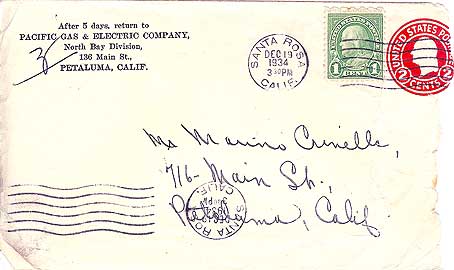 After 5 days, return to
PACIFIC GAS & ELECTRIC COMPANY,
North Bay Division,
136 Main St.,
PETALUMA, CALIF.
SANTA ROSA
DEC 19
1934
3 30 PM
CALIF.
1 CENT 1
UNITED STATES
2 CENTS 2
Marino
716- Main St.,
Petaluma, Calif.
SANTA
CALIF.
1934